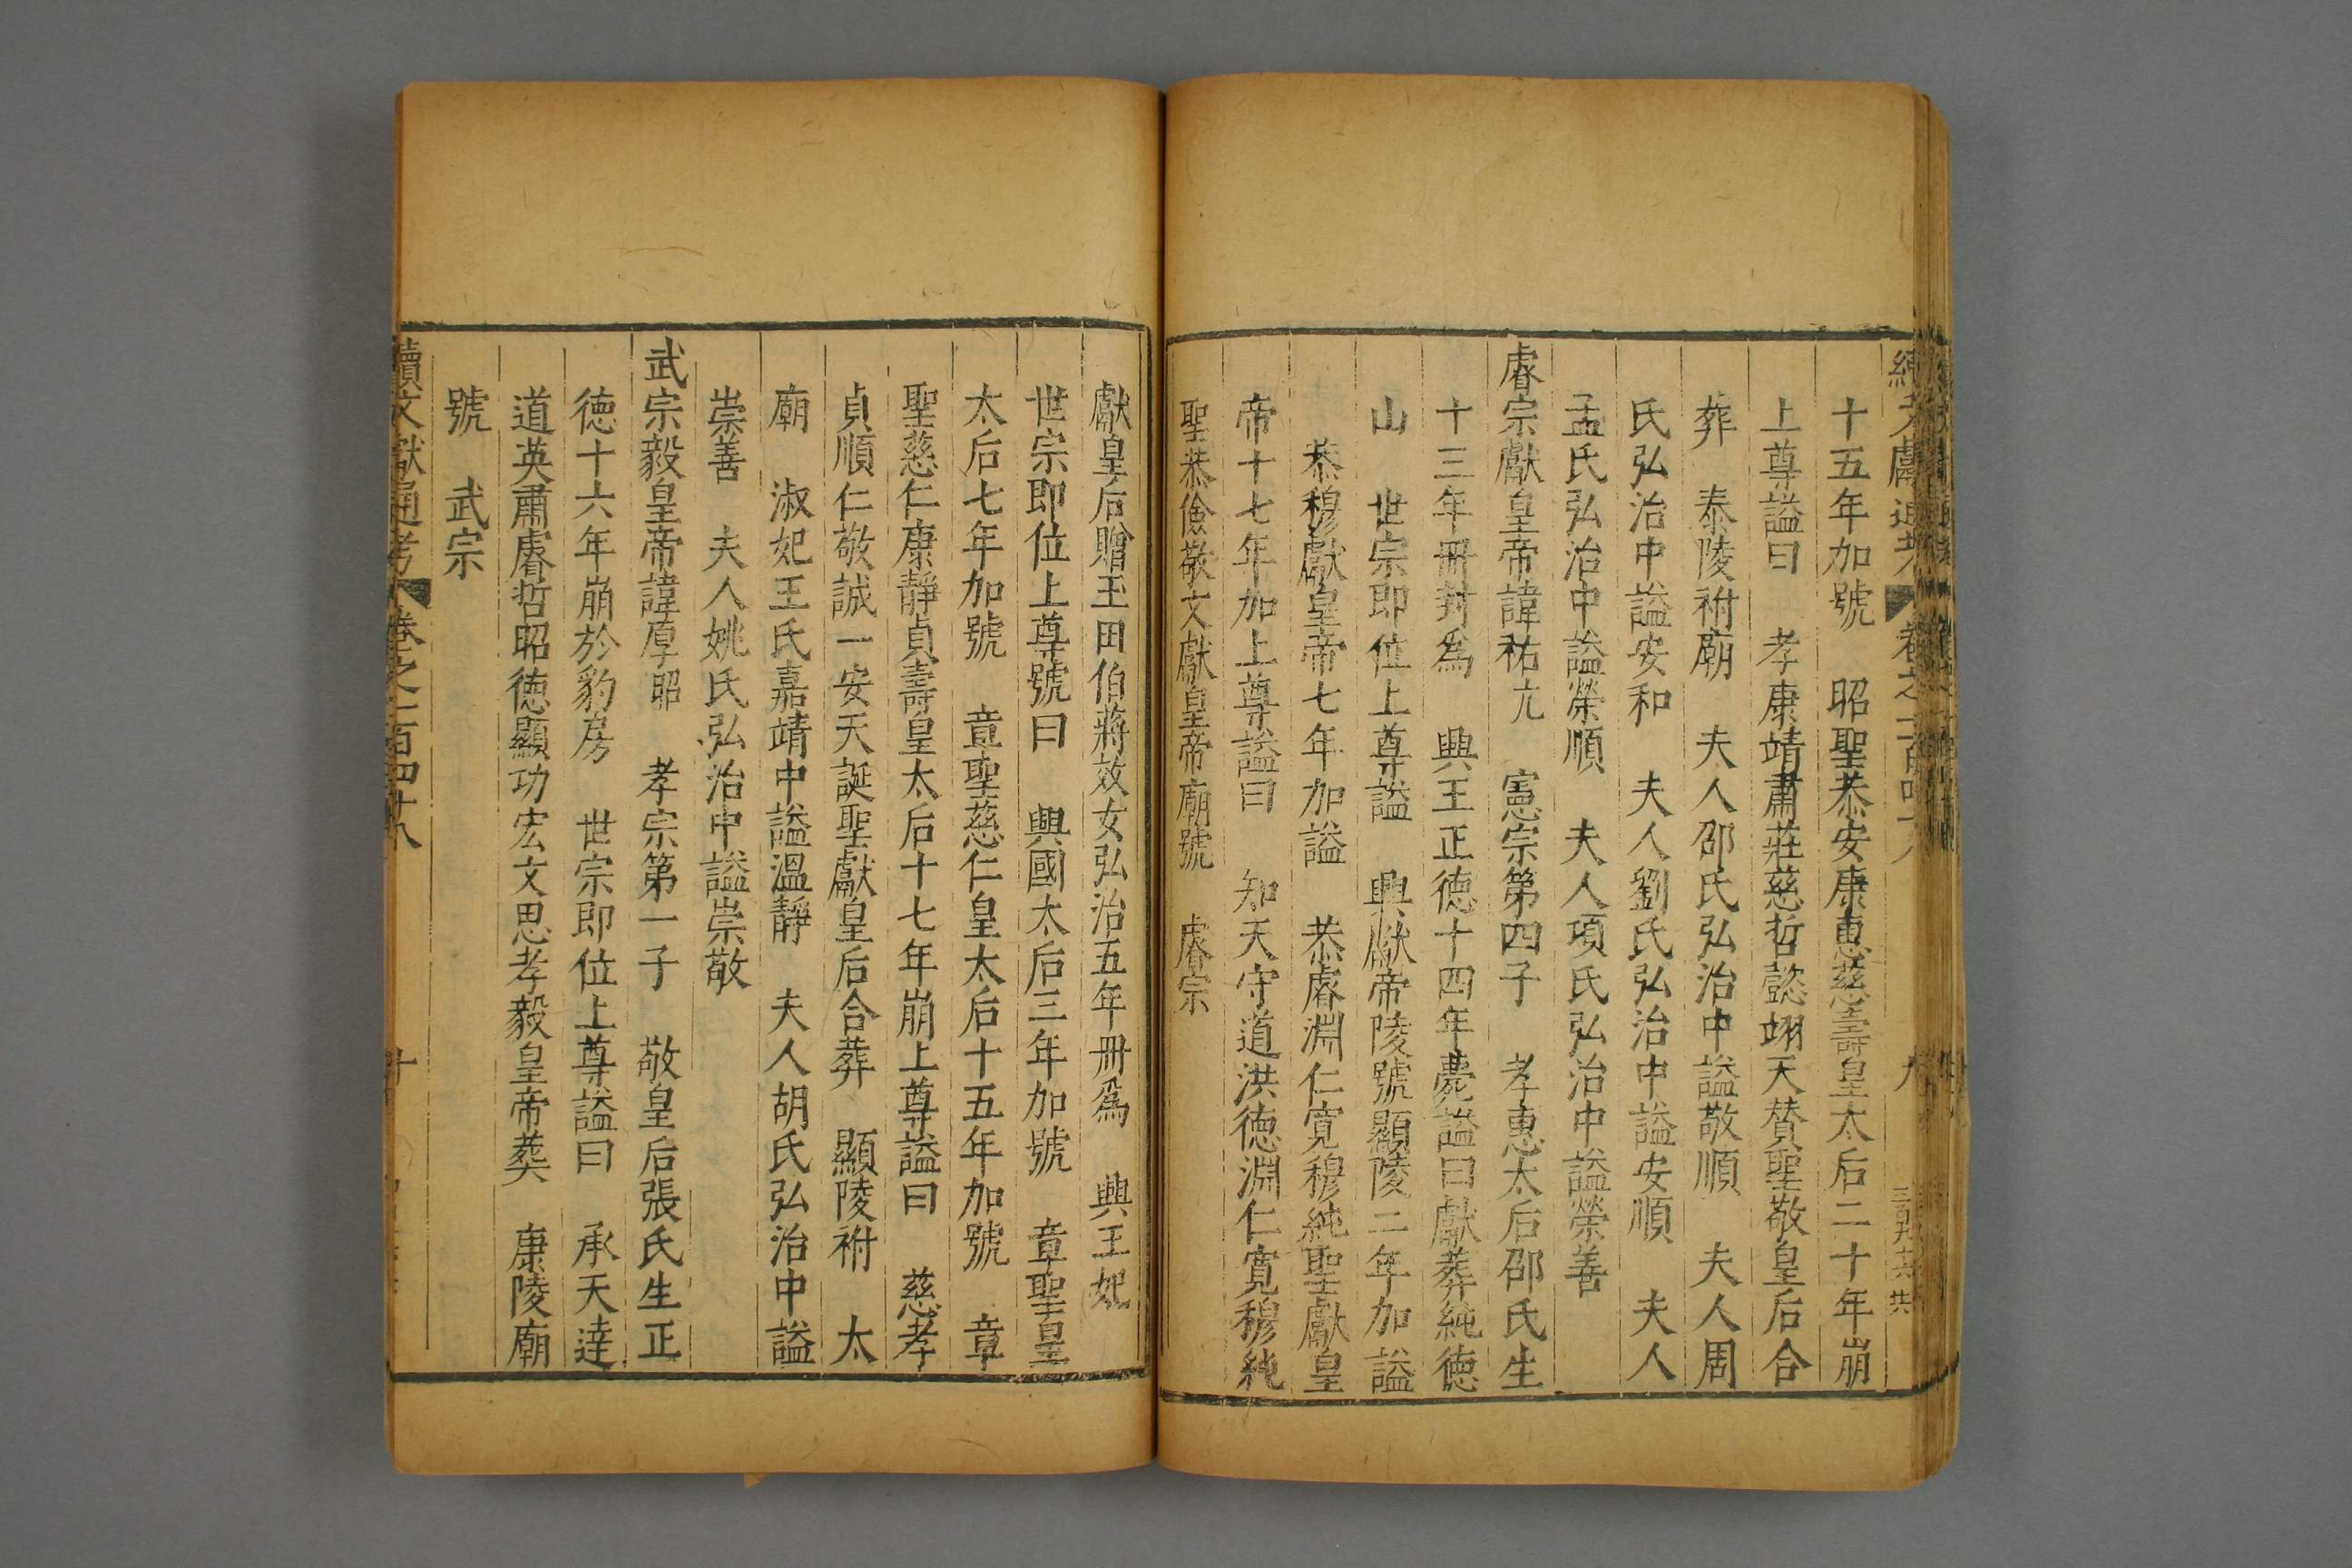 十五年加號　昭聖恭安康惠慈壽皇太后二十年崩
上尊謚曰　孝康靖肅莊慈哲懿翊天賛聖敬皇后合
葬　泰陵祔廟　夫人邵氏弘治中謚敬順　夫人周
氏弘治中謚安和　夫人劉氏弘治中謚安順　夫人
孟氏弘治中謚榮順　夫人項氏弘治中謚榮善
睿宗獻皇帝諱祐杬　憲宗第四子　孝惠太后邵氏生
十三年冊封爲　興王正德十四年薨謚曰獻葬純德
山　世宗即位上尊謚　興獻帝陵號顯陵二年加謚
恭穆獻皇帝七年加謚　恭睿淵仁寬穆純聖獻皇
帝十七年加上尊謚曰　知天守道洪德淵仁寬穆純
聖恭儉敬文獻皇帝廟號　睿宗
獻皇后贈玉田伯蔣效女弘治五年冊爲　興王妃
世宗即位上尊號曰　興國太后三年加號　章聖皇
太后七年加號　章聖慈仁皇太后十五年加號　章
聖慈仁康靜貞壽皇太后十七年崩上尊謚曰　慈孝
貞順仁敬誠一安天誕聖獻皇后合葬　顯陵祔　太
廟　淑妃王氏嘉靖中謚溫靜　夫人胡氏弘治中謚
崇善　夫人姚氏弘治中謚崇敬
武宗毅皇帝諱厚照　孝宗第一子　敬皇后張氏生正
德十六年崩於豹房　世宗即位上尊謚曰　承天達
道英肅睿哲昭德顯功宏文思孝毅皇帝葬　康陵廟
號　武宗
續文獻通考　卷之一百四十八　十